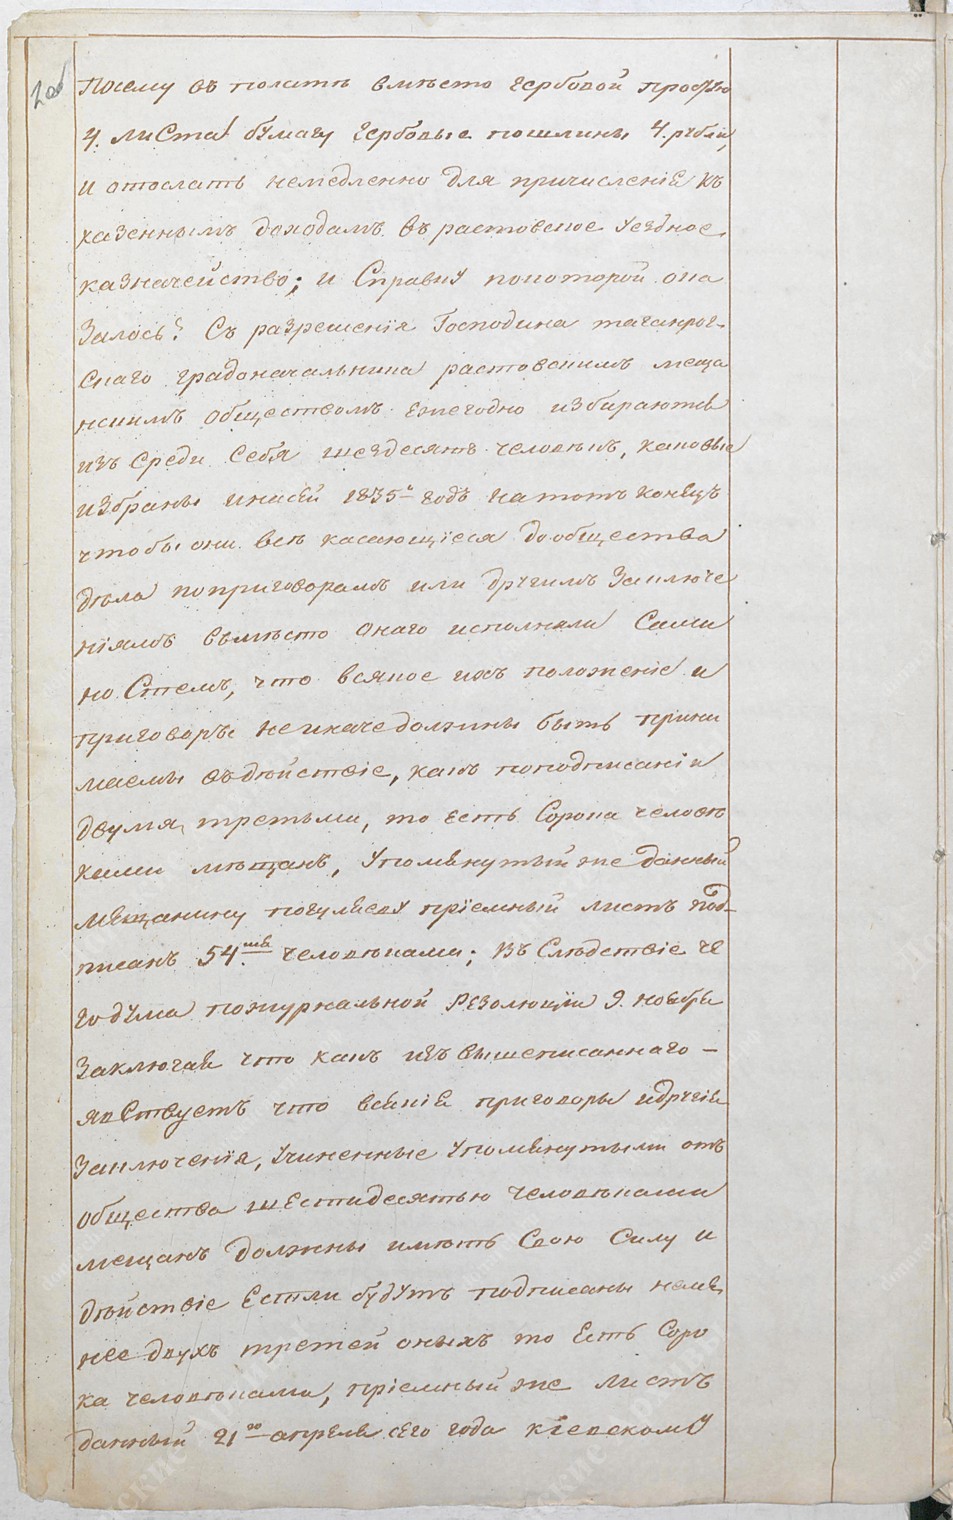 посему въ полать вместо гербовой простую
4. листа бумагу гербовые пошлины 4. рубли,
и отослать немедленно для причисленіе къ
казеннымъ доходамъ въ растовское уездное
казначейство; и Справку по которой ока
залось: Съ разрешенія Господина таганрог-
скаго градоначальника растовскимъ меща
нскимъ обществомъ ежегодно избираются
изъ среди себя шездесятъ человекъ, каковые
избраны и на сей 1835й годъ на тотъ конецъ
чтобы они все касающіеся до общества
дела по приговорамъ или другимъ Заключе
ніямъ въместо онаго исполняли Сами
но Стемъ, что всякое ихъ положеніе и
приговоръ не иначе должны быть прини
маемы въ действіе, какъ по подписаніи
двумя третьми, то есть Сорока челове
ками мещанъ, упомянутый же данный
мещанину пріемный листъ под-
писанъ 54мя человеками; въ Следствіе че
го дума по журнальной резолюціи 9. ноября
заключая что какъ изъ вышеписаннаго –
явствуетъ что всякіе приговоры и другіе
Заключенія, учиненные упомянутыми отъ
общества шестидесятью человеками
мещанъ должны иметь Свою Силу и
действіе Естли будутъ подписаны неме
нее двухъ третей оныхъ то есть Соро
ка человеками, пріемный же листъ
данный 21го апреля сего года кіевскому